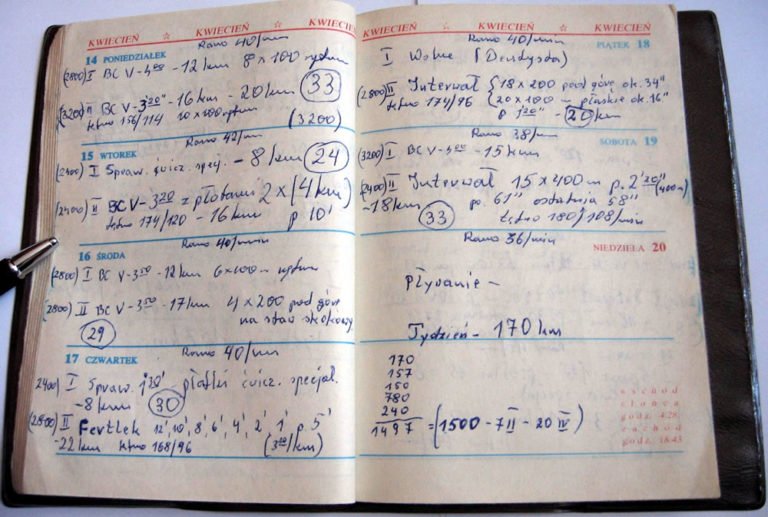 KWIECIEŃ ☆ KWIECIEŃ ☆ KWIECIEŃ
Rano 40/min
14 PONIEDZIAŁEK
(2800) I BC V-4⁰⁰ - 12 km 8 x 100 rytm
(3200) II BC V-3'20" - 16 km - 20 km (33)
tętno 156/114 10 x 100 rytm (3200)
Rano 42/min
15 WTOREK
(2400) I Spraw. ćwicz. specj. - 8 km (24)
(2400) II BC V-3²⁰ z płotkami 2 x (4 km)
tętno 174/120 - 16 km p 10'
Rano 40/min
16 ŚRODA
(2800) I BC V-3⁵⁰ - 12 km 6x100 m rytm
(2800) II BC V-3⁵⁰ - 17 km 4 x 200 pod górę
(29) na staw skokowy
Rano 40/min
17 CZWARTEK
2400) I Spraw. 1°20' płotki ćwicz. specjal.
- 8 km (30)
(2800) II Fertlek 12', 10', 8', 6', 4', 2', 1' p 5'
- 22 km tętno 168/96 (3²⁰/km)
KWIECIEŃ ☆ KWIECIEŃ ☆ KWIECIEŃ
Rano 40/min
PIĄTEK 18
I Wolne
(2800) II Interwał { 18 x 200 pod górę ok. 34"
tętno 174/96 (20 x 100 m płaskie ok. 16"
p 1'20" - (20) km
Rano 38/min
SOBOTA 19
(3200) I BC V-4⁰⁰ - 15 km
(2400) II Interwał 15 x 400 m p. 2'20" (400 m)
- 18 km (33) po 61" ostatnia 58"
tętno 180/108/min
Rano 36/min
NIEDZIELA 20
Pływanie -
Tydzień - 170 km
170
157
150
780
240
1497 = (1500 - 7 II - 20 IV)
wschód
słońca
godz. 4.28,
zachód
godz. 18.43